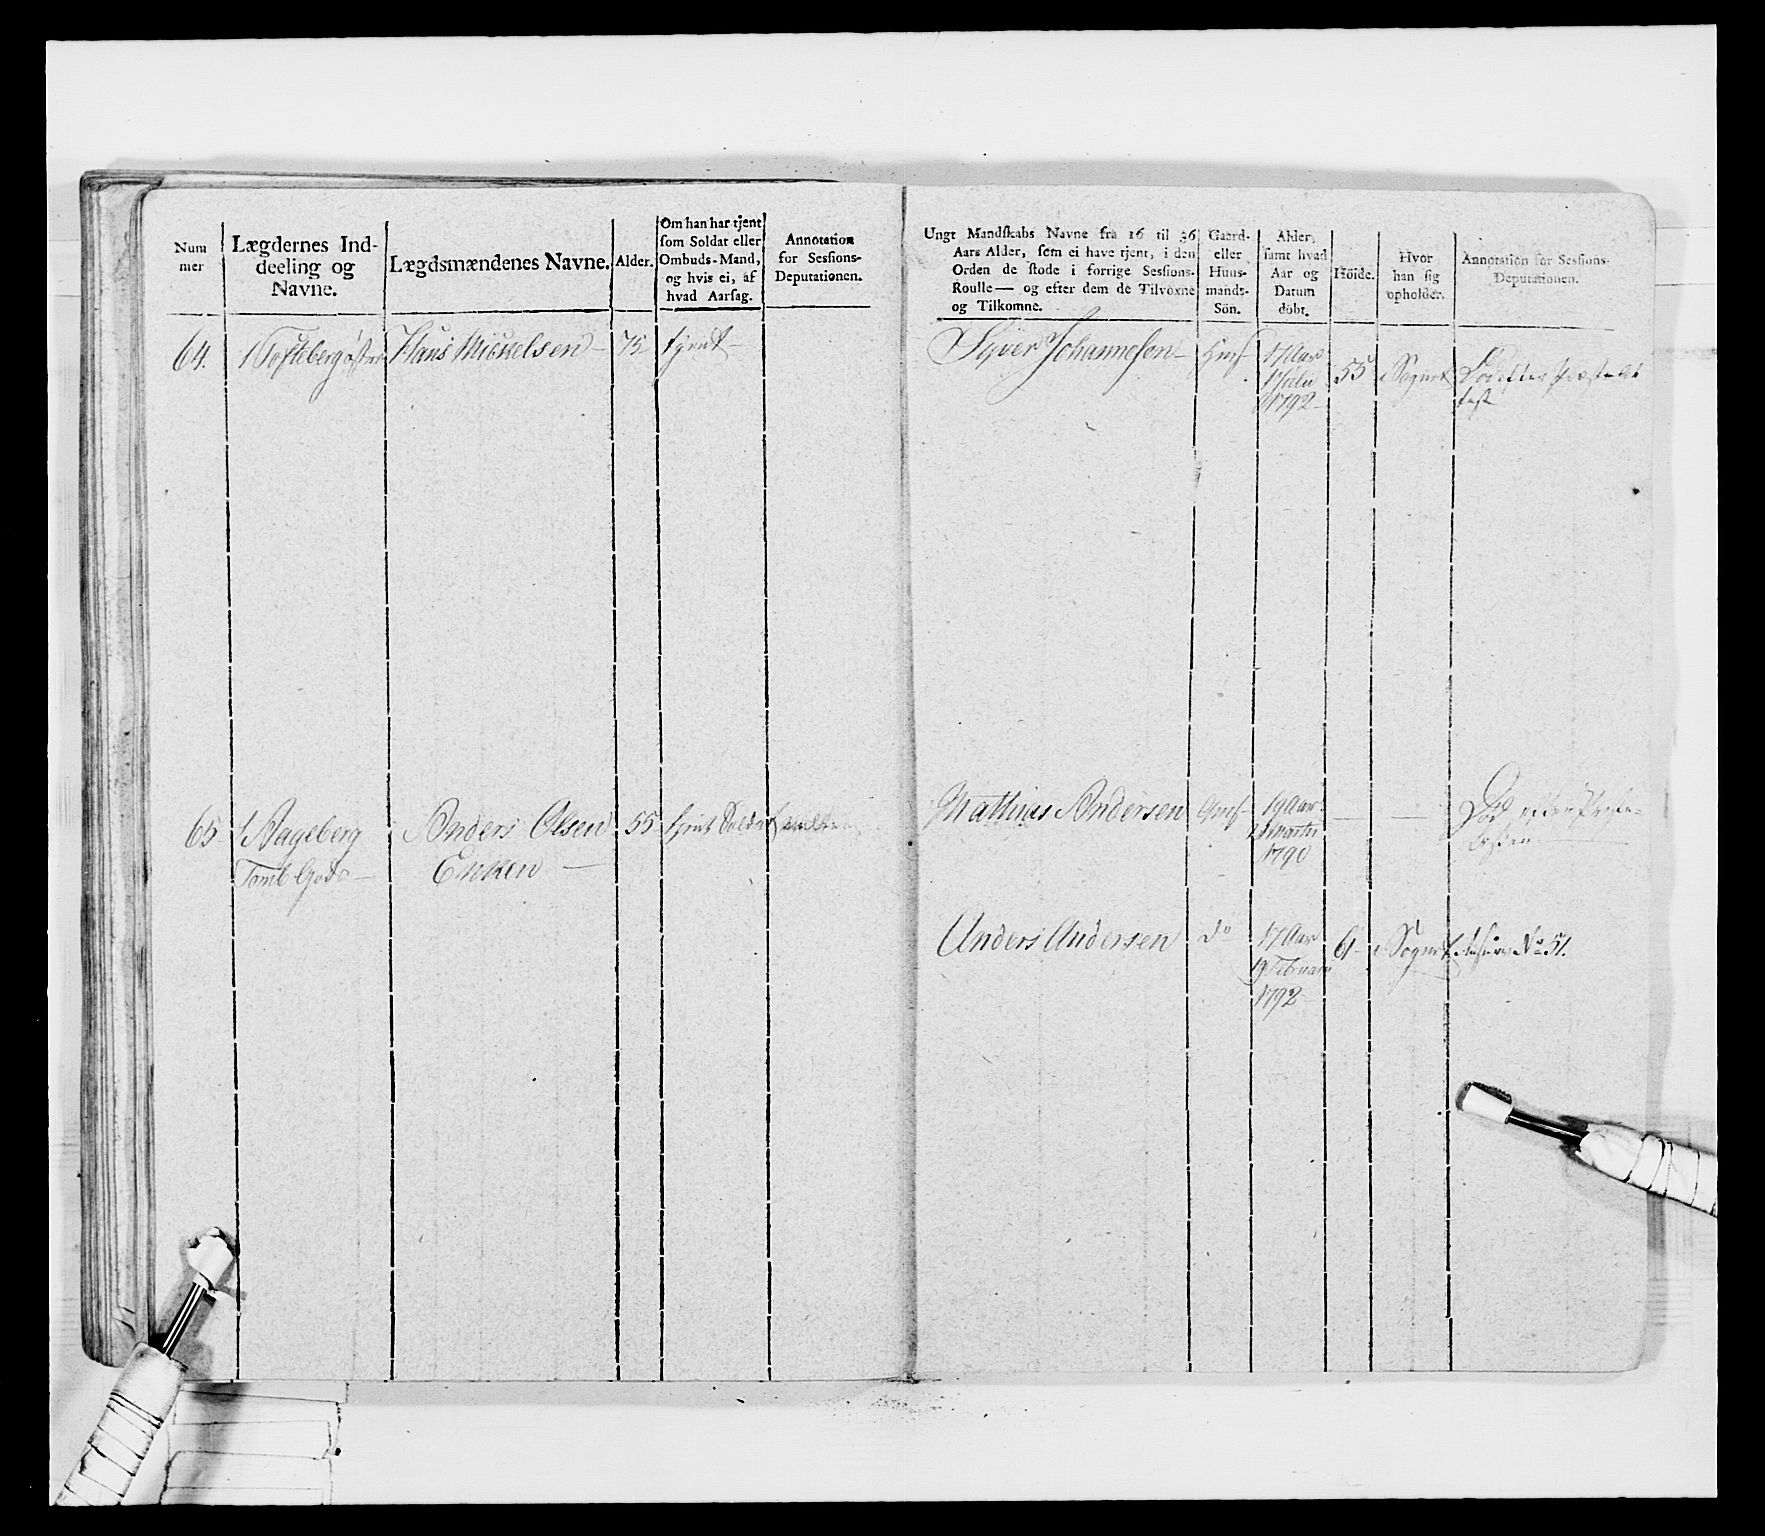 Num
mer
Lægdernes Ind-
deeling og
Navne.
Lægdsmændenes Navne.
Alder.
Om han har tjent
som Soldat eller
Ombuds-Mand,
og hvis ei, af
hvad Aarsag.
Annotation
for Sessions-
Deputationen.
Ungt Mandskabs Navne fra 16 til 36
Aars Alder, som ei have tjent, i den
Orden de stode i forrige Sessions-
Roulle — og efter dem de Tilvoxne
og Tilkomne.
Gaard-
eller
Huus-
mands-
Sön.
Alder,
samt hvad
Aar og
Datum
döbt.
Höide.
Hvor
han sig
opholder.
Annotation for Sessions-
Deputationen.
64.
1 Tofteberg öster
Hans Mickelsen —
75
tjent —
Syver Johannesen —
Huus-
17 Aar
1 Julii
1792 —
55
i Sognet
Död efter
65
1 Aageberg
Tomb Gods —
Anders Olsen
Enken —
55
tjent Soldat
Mathias Andersen
19 Aar
Martii
1790
— —
Död efter
Anders Andersen
do
17 Aar
19 Februarii
1792
61-
i Sognet
No 51.